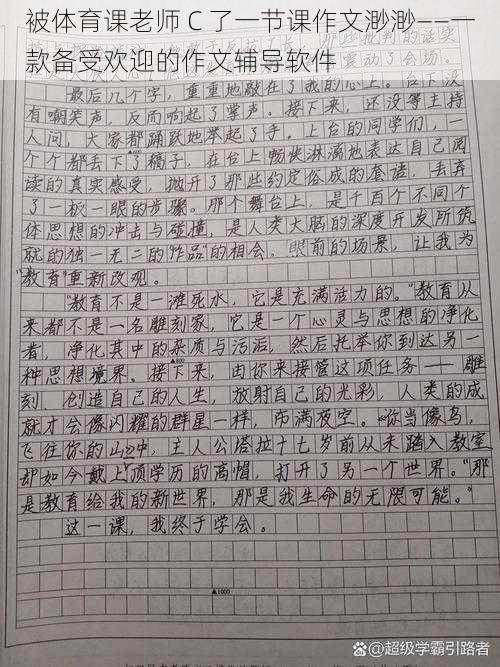 被体育课老师 C 了一节课作文渺渺——一
款备受欢迎的作文辅导软件
最后几个字，重重地敲在了我的心上。台下没
有嘲笑声，反而响起了掌声。接下来，还没等主持
人问，大家都踊跃地举起了手。上台的同学们，一
个个都丢下了稿子，在台上畅快淋漓地表达自己阅
读的真实感受，抛开了那些约定俗成的套话，丢弃
了一板一眼的步骤。那个舞台上，是千百个不同个
体思想的冲击与碰撞，是人类大脑的深度开发所筑
就的独一无二的“作品”的相会。眼前的场景，让我为
“教育”重新改观。
“教育不是一滩死水，它是充满活力的。”教育从
来都不是一名雕刻家，它是一个心灵与思想的净化
者，净化其中的杂质与污垢，然后托举你到达另一
种思想境界。接下来，由你来接管这项任务——雕
刻、创造自己的人生，放射自己的光彩，人类的成
就才会像闪耀的群星一样，布满夜空。“你当像鸟，
飞往你的山”中，主人公塔拉十七岁前从未踏入教室
却如今戴上顶学历的高帽，打开了另一个世界。“那
是教育给我的新世界，那是我生命的无限可能。”
这一课，我终于学会。
▲800
▲1000
头条 @超级学霸引路者